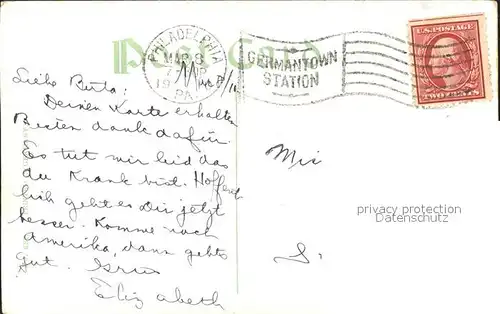 Post Card
PHILADELPHIA
MAR 8
19
PA.
GERMANTOWN
STATION
U.S. POSTAGE
TWO CENTS
Liebe Berta:
Deinen Karte erhalten
Besten dank dafür.
Es tut mir leid das
du Krank bist. Hoffent
lich geht es Dir jetzt
besser. Komme nach
Amerika, dann gehts
gut. Grus
Elizabeth
Mis
S.
privacy protection
Datenschutz